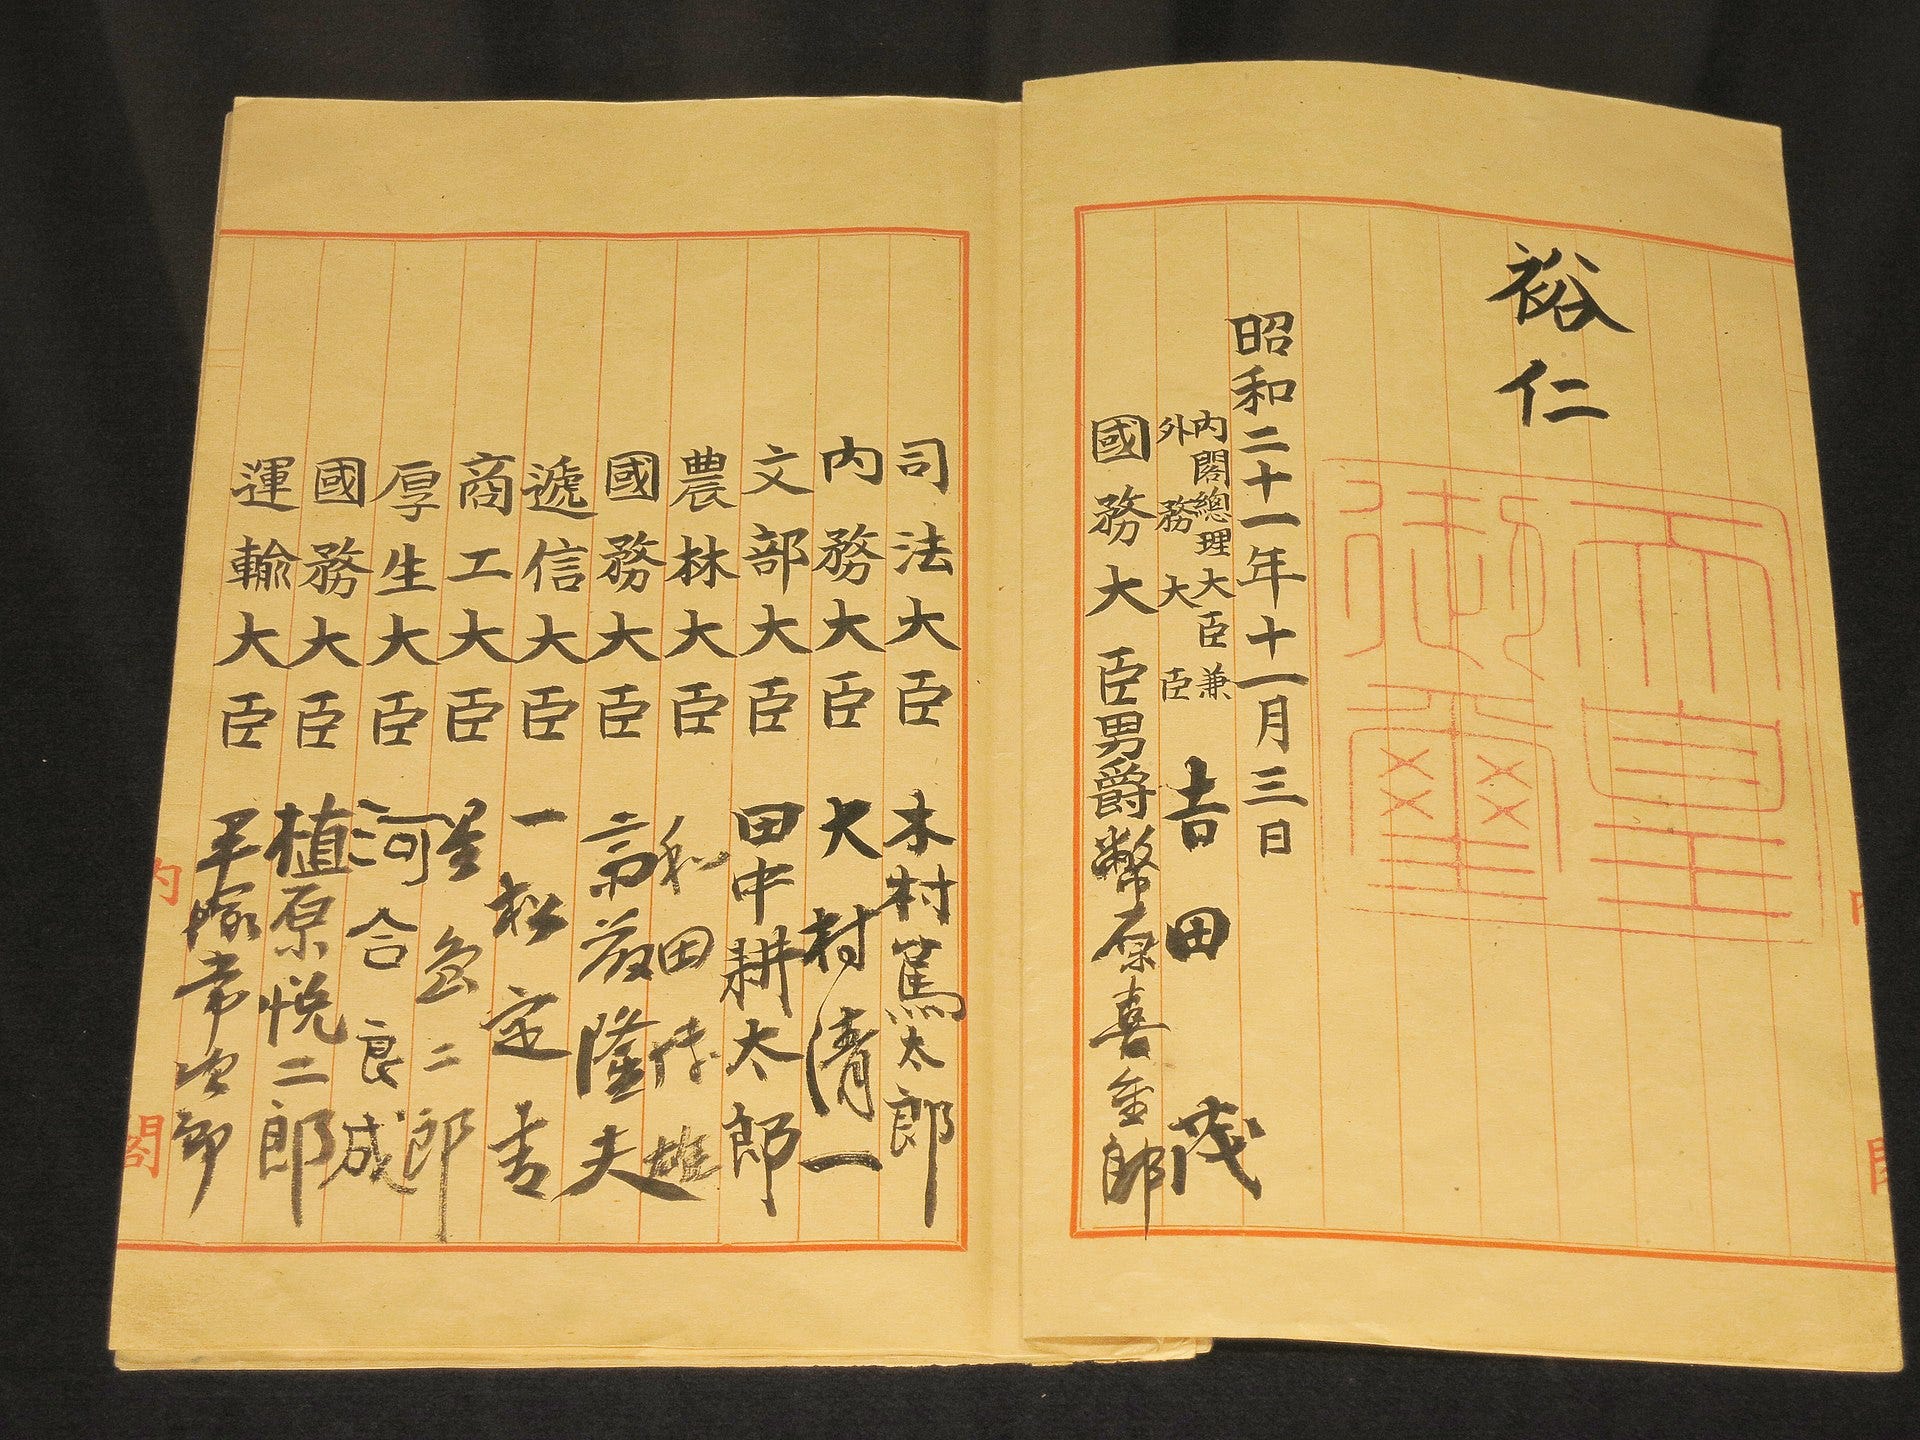 裕仁
天皇
御璽
昭和二十一年十一月三日
内閣總理大臣兼
外務大臣
吉田茂
國務大臣男爵幣原喜重郎
司法大臣 木村篤太郎
内務大臣 大村清一
文部大臣 田中耕太郎
農林大臣 和田博雄
國務大臣 斎藤隆夫
遞信大臣 一松定吉
商工大臣 星島二郎
厚生大臣 河合良成
國務大臣 植原悦二郎
運輸大臣 平塚常次郎
内閣